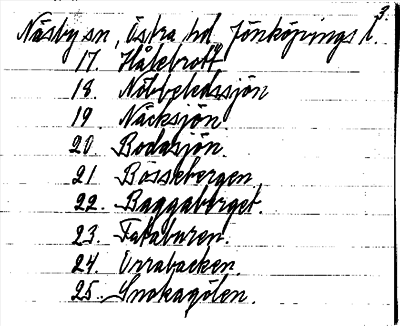 3.
Näsby sn, Östra hd Jönköpings l.
17. Hålebrott
18. Nöbbeledssjön
19. Näcksjön
20. Bodasjön.
21 Bössebergen
22. Baggaberget.
23. Fakaburen.
24. Orrabacken.
25. Snokagölen.